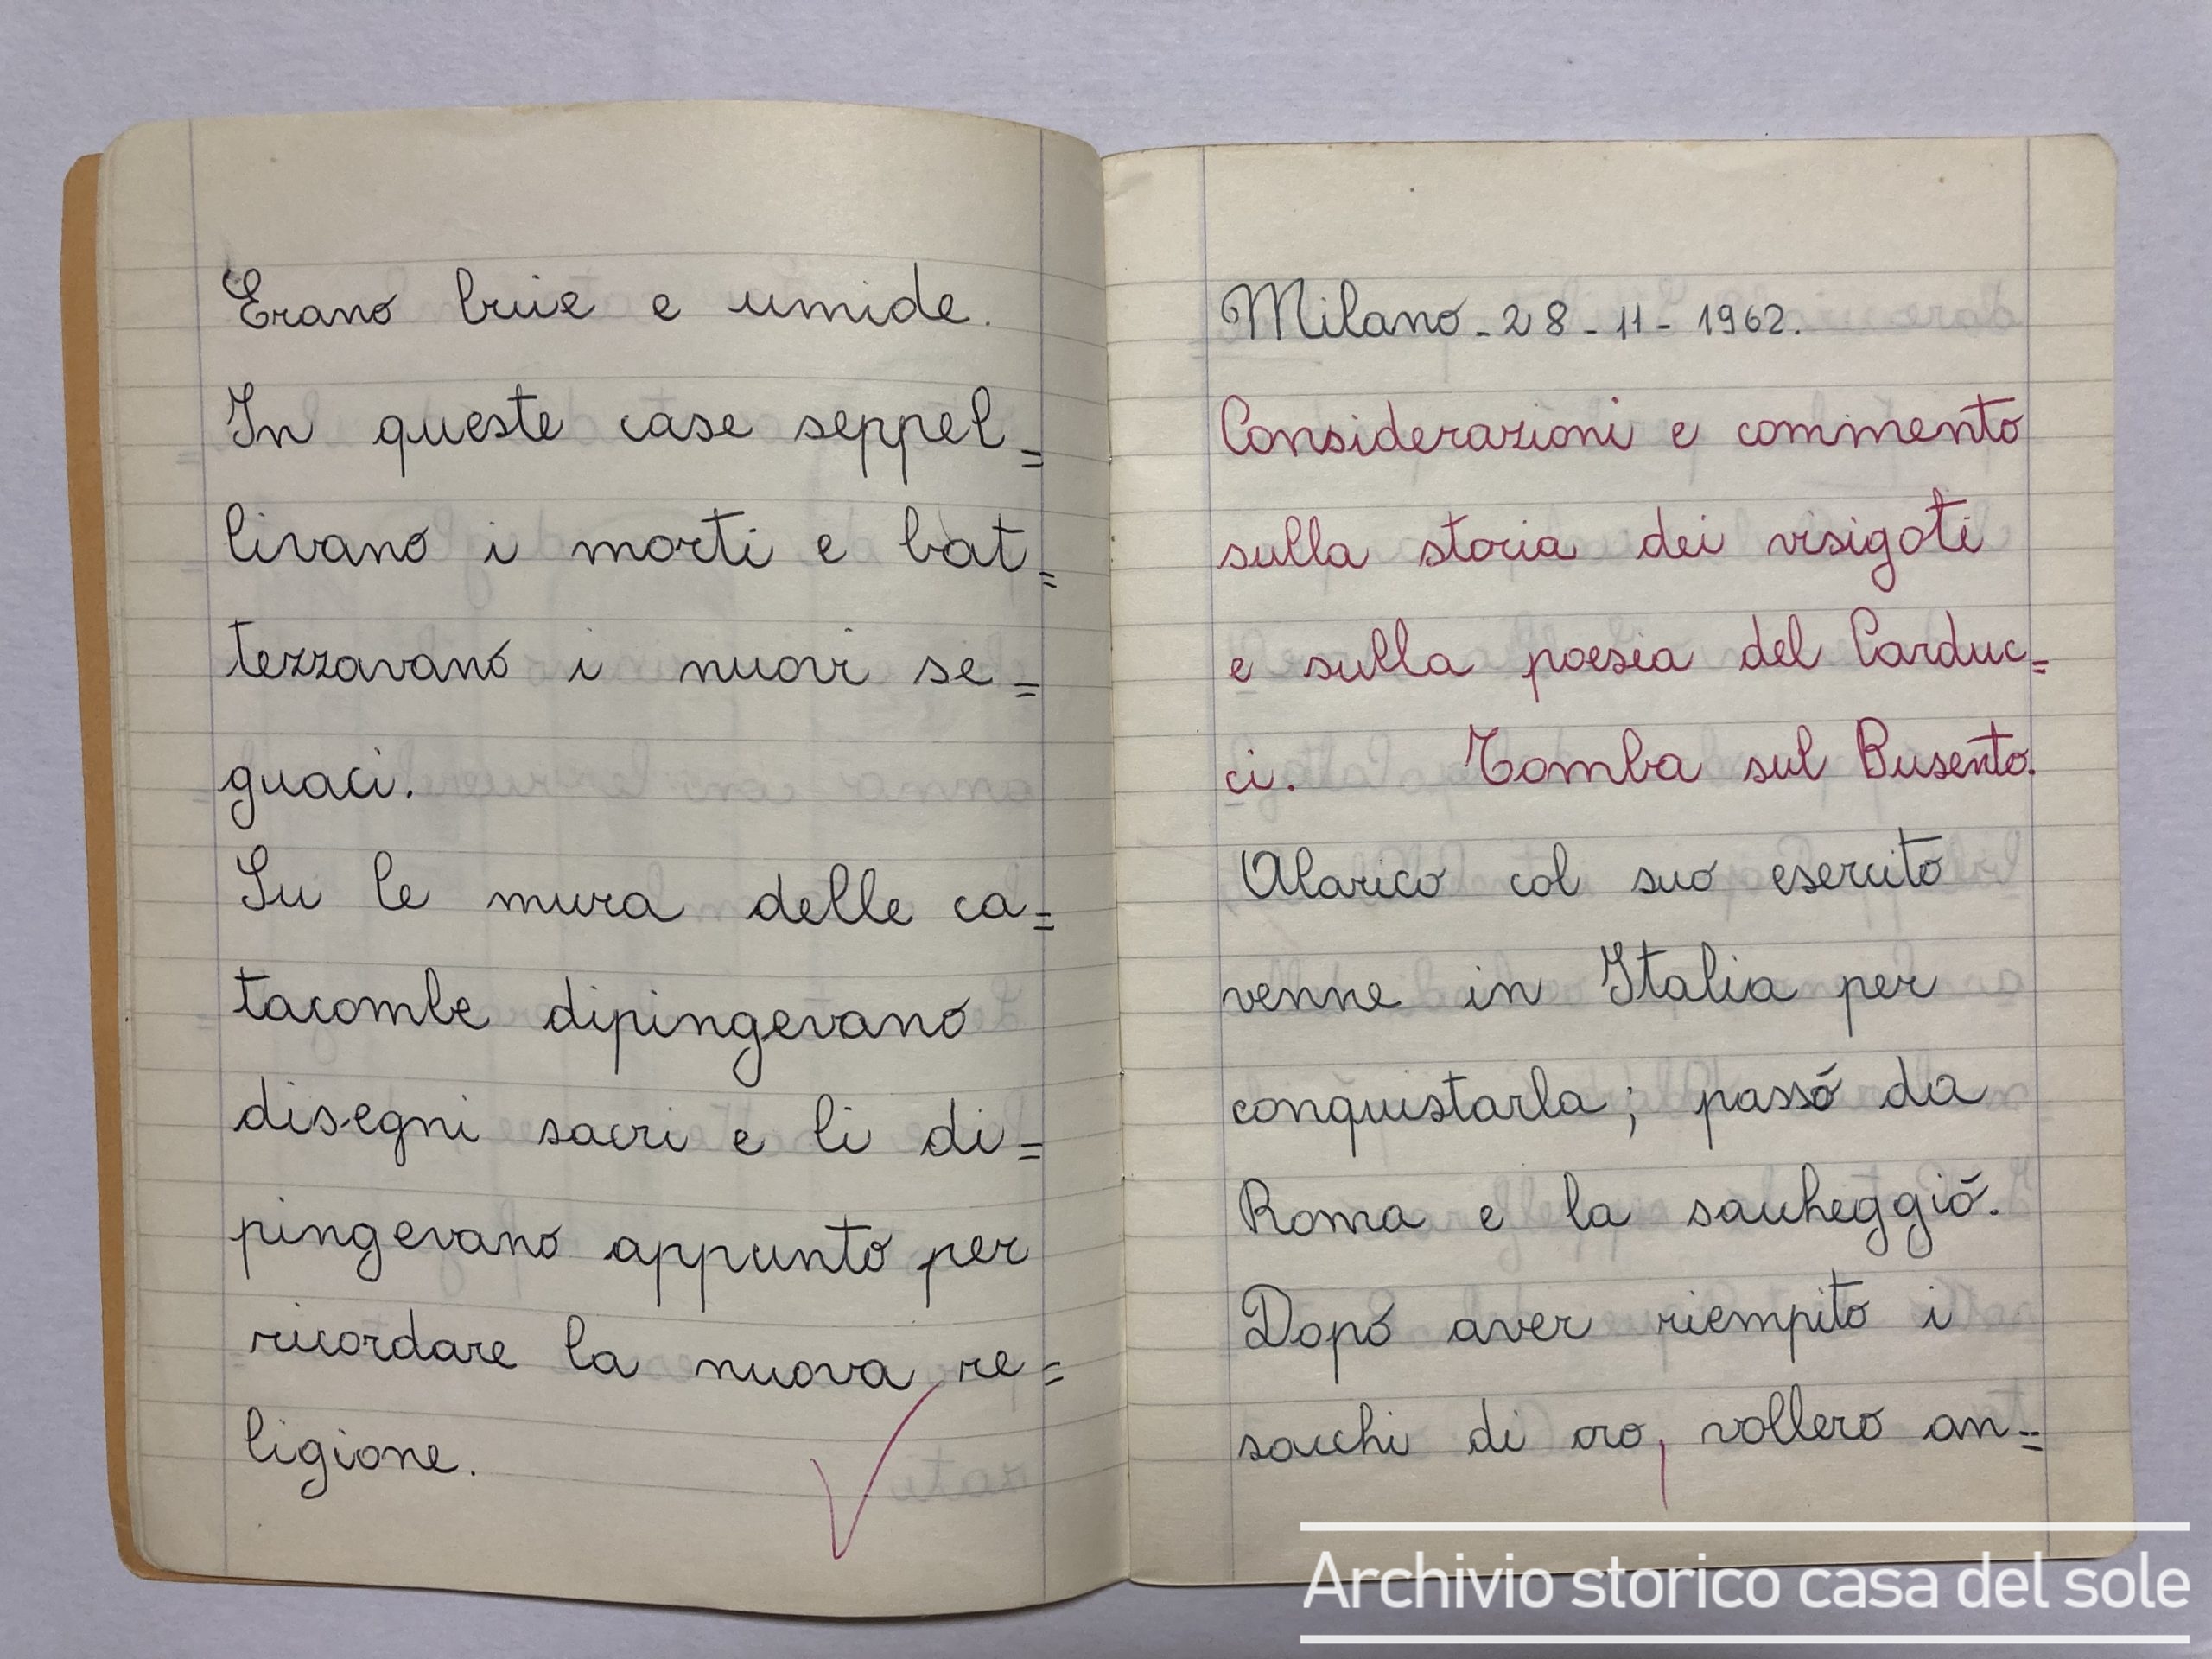 Erano buie e umide.
In queste case seppel=
livano i morti e bat=
tezzavano i nuovi se=
guaci.
Su le mura delle ca=
tacombe dipingevano
disegni sacri e li di=
pingevano appunto per
ricordare la nuova re=
ligione.
Milano - 28 - 11 - 1962.
Considerazioni e commento
sulla storia dei visigoti
e sulla poesia del Carduc=
ci. Tomba sul Busento.
Alarico col suo esercito
venne in Italia per
conquistarla; passó da
Roma e la saccheggió.
Dopo aver riempito i
sacchi di oro, vollero an=
Archivio storico casa del sole